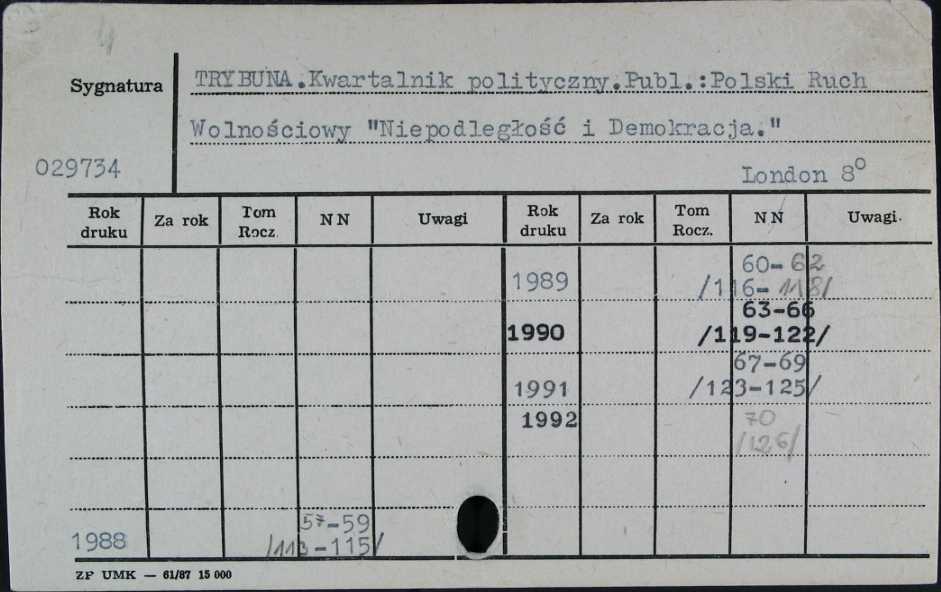 4
TRYBUNA.Kwartalnik polityczny.Publ.:Polski Ruch
Sygnatura
Wolnościowy "Niepodległość i Demokracja."
029734
London 8º
Rok druku Za rok Tom Rocz. NN Uwagi Rok druku Za rok Tom Rocz. NN Uwagi.
60-62
1989 /116-118/
63-66
1990 /119-122/
67-69
1991 /123-125/
1992 70
/126/
57-59
1988 /113-115/
ZP UMK — 61/87 15 000